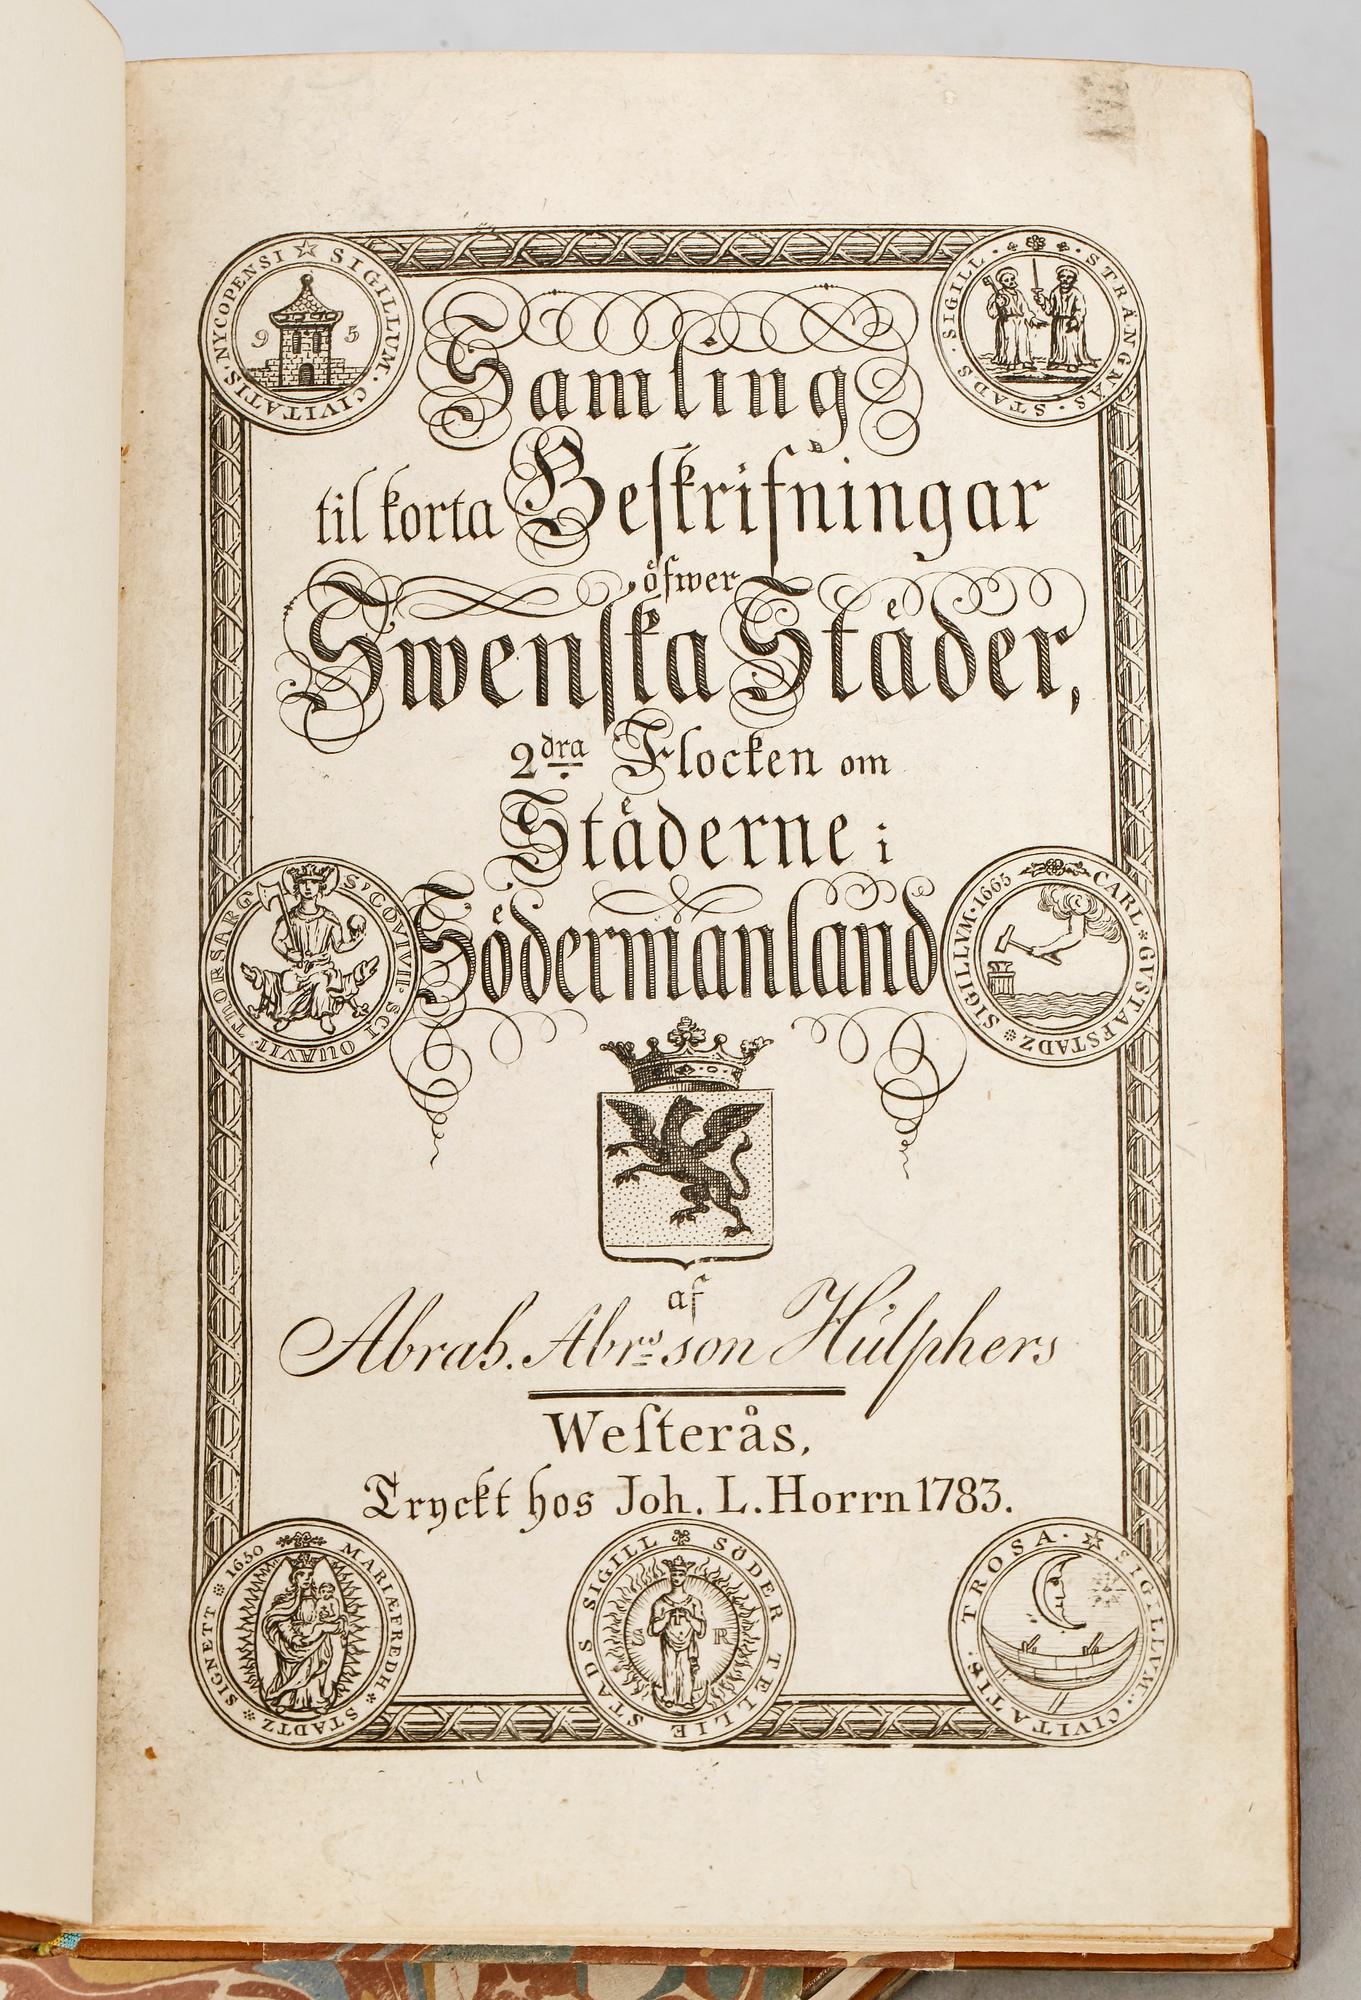 NYCOPENSI ☆ SIGILLUM · CIVITATIS
9 5
SIGILL · STRÄNGNÄS · STADS
Samling
til korta Beskrifningar
öfwer
Swenska Städer,
2dra Flocken om
Städerne i
Södermanland
THORSARG
CARL * GVSTAFSTADZ * SIGILLVM · 1665
af
Abrah. Abrs son Hülphers
Westerås,
Tryckt hos Joh. L. Horrn 1783.
1650 MARIÆFREDH * STADTZ * SIGNETT
SÖDER TELLIE STADS SIGILL
S R
TROSA · SIGILLVM · CIVITATIS